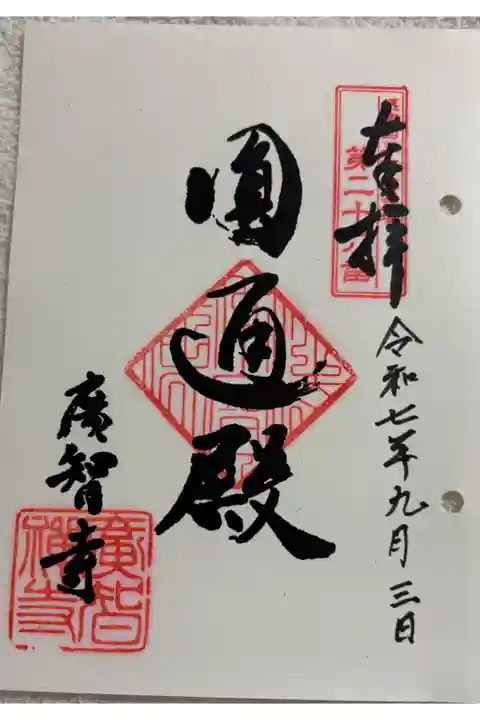 奉拝
令和七年九月三日
圓通殿
廣智寺
第二十八番
廣智禅寺